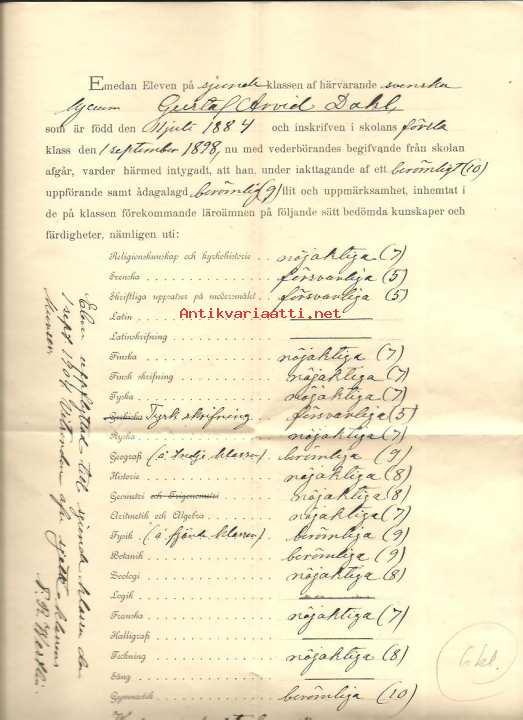 Emedan Eleven på sjunde klassen af härvarande svenska
lyceum Gustaf Arvid Dahl,
som är född den juli 1884 och inskrifven i skolans första
klass den 1 september 1898, nu med vederbörandes begifvande från skolan
afgår, varder härmed intygadt, att han, under iakttagande af ett berömligt (10)
uppförande samt ådagalagd berömlig (9) flit och uppmärksamhet, inhemtat i
de på klassen förekommande läroämnen på följande sätt bedömda kunskaper och
färdigheter, nämligen uti:
Religionskunskap och kyrkohistorie . . nöjaktiga (7)
Svenska . . försvarliga (5)
Skriftliga uppsatser på modersmålet . . försvarliga (5)
Antikvariaatti.net
Latin
Latinskrifning
Finska nöjaktiga (7)
Finsk skrifning nöjaktiga (7)
Tyska nöjaktiga (7)
Tysk skrifning försvarliga (5)
Ryska nöjaktiga (7)
Geografi (å tredje klassen) berömliga (9)
Historie nöjaktiga (8)
Geometri och Trigonometri nöjaktiga (8)
Aritmetik och Algebra nöjaktiga (7)
Fysik (å fjärde klassen) berömliga (9)
Botanik berömliga (9)
Zoologi nöjaktiga (8)
Logik
Franska nöjaktiga (7)
Kalligrafi
Teckning nöjaktiga (8)
Sång
Gymnastik berömliga (10)
Elev uppflyttad till sjunde klassen den
1 sept 1904. af sjette klassens
6 kl.